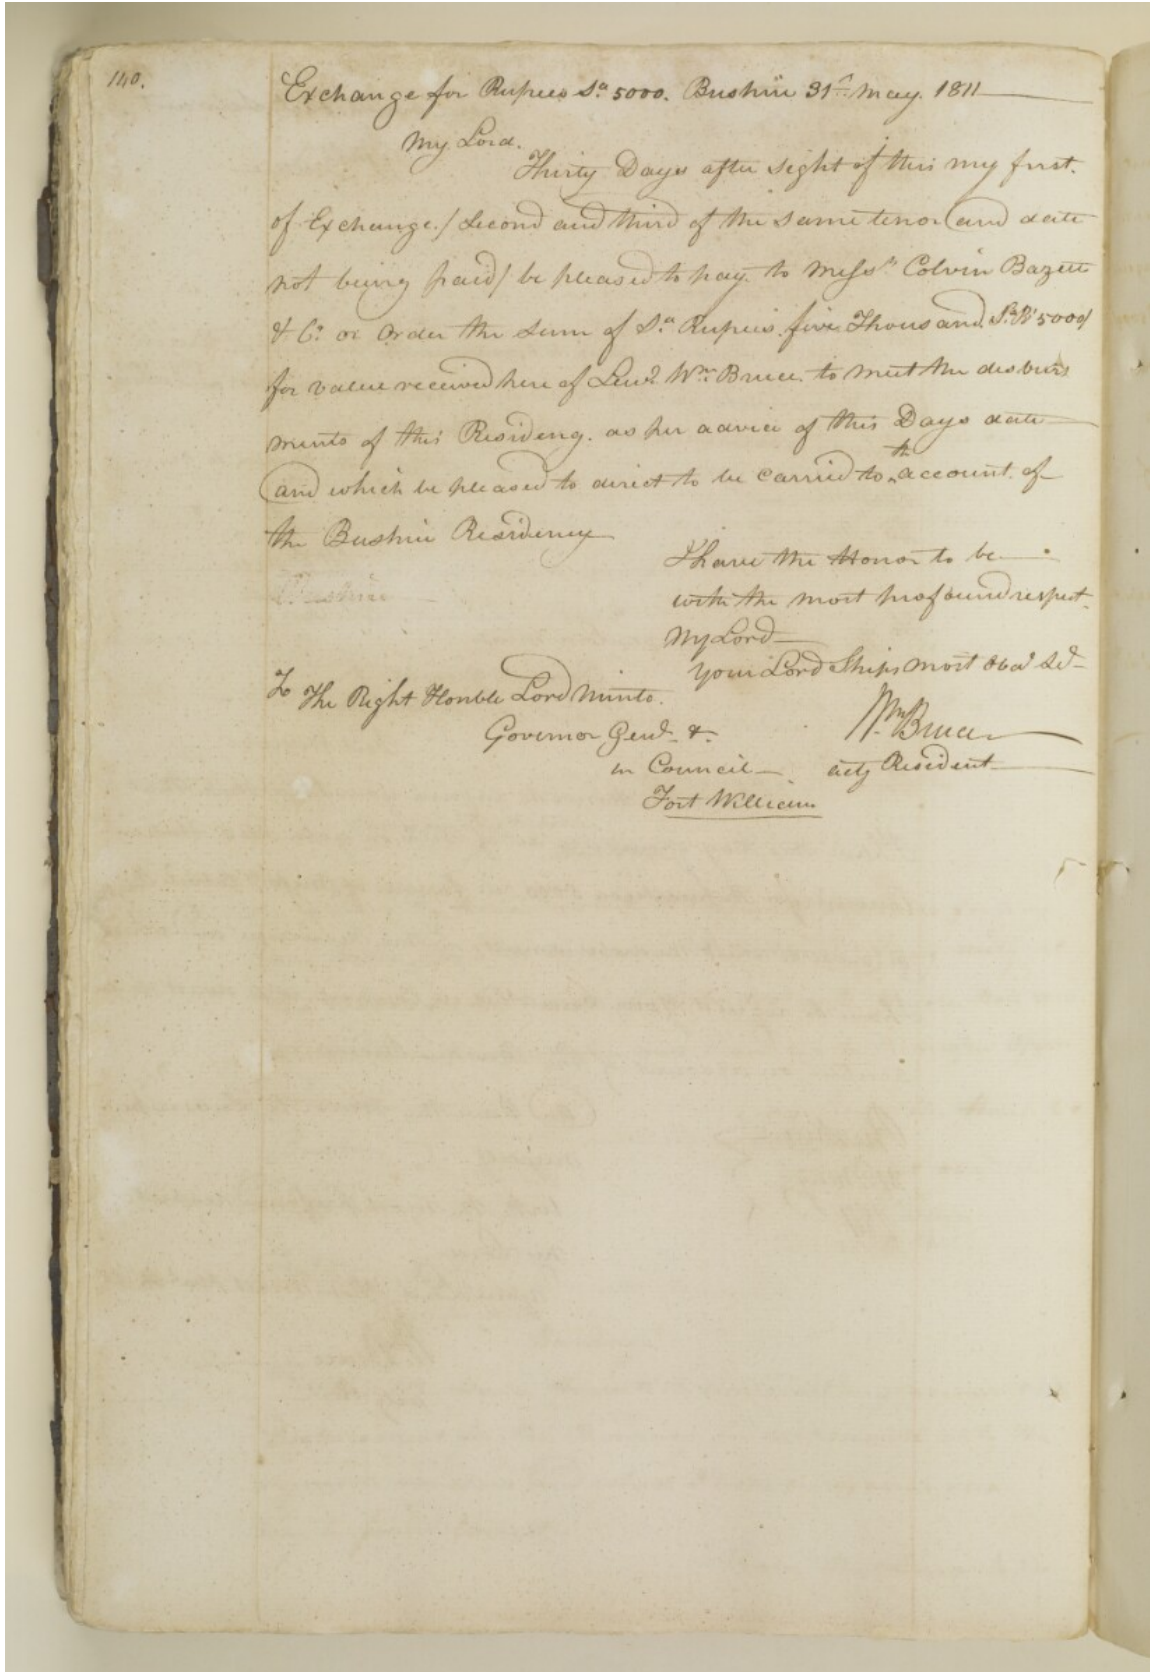 140.
Exchange for Rupees Sa. 5000. Bushire 31st May. 1811
My Lord.
Thirty Days after sight of this my first.
of Exchange./ Second and third of the same tenor and date
not being paid/ be pleased to pay to Messrs Colvin Bazett
& Co. or Order the Sum of Sa. Rupees five Thousand Sa. Rs 5000/
for value received here of Lieut. Wm. Bruce to meet the disburs
ments of this Residency. as per advice of this Days date
and which be pleased to direct to be carried to the account of
the Bushire Residency
Bushire
I have the Honor to be
with the most profound respect.
My Lord
your Lord Ships most Obdt Sert
To The Right Honble Lord Minto.
Governor Genl. &.
in Council
Fort William
Wm Bruce
actg Resident